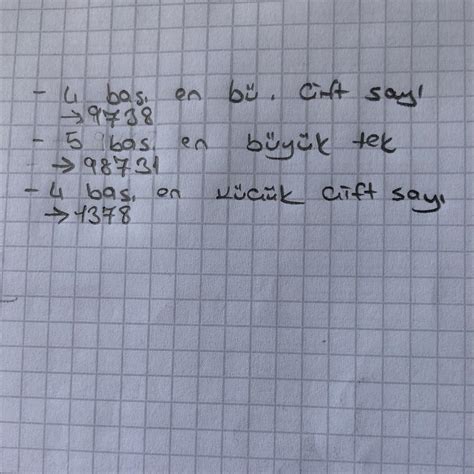 - 4 bas. en bü. Çift sayı
→ 9738
- 5 bas. en büyük tek
→ 98731
- 4 bas. en küçük Çift sayı
→ 1378